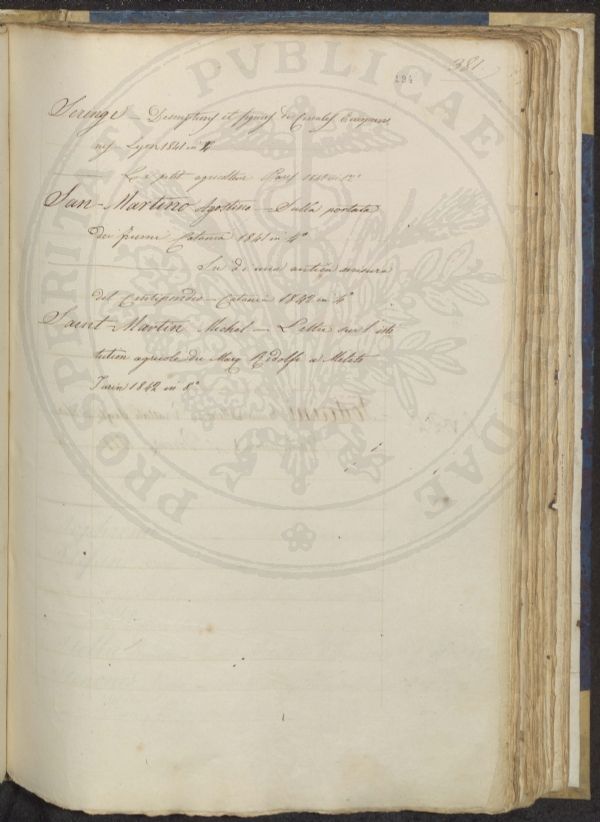 381
194
Seringe — Descriptions et figures des Céréales Européen
nes Lyon 1841 in 4°
— Le petit agriculteur Paris 1841 in 12°
San-Martino Agostino — Sulla portata
dei fiumi Catania 1841 in 4°
— Su di una antica misura
del Centipondio — Catania 1842 in 4°
Saint-Martin Michel — Lettre sur l'isti
tution agricole du Marq Ridolfi a Meleto
Turin 1842 in 8°
PROSPERITATI PVBLICAE AVGENDAE